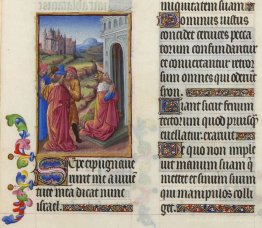 Sepe expugnaue
runt me a iuuen
tute mea dicat nunc
israel.
iniquitatem suam
Dominus iustus
concidet ceruices pecca
torum confundantur
et conuertantur retror
sum omnes qui oderunt
sion.
Fiant sicut fenum
tectorum quod priusq
euellatur exaruit
De quo non imple
uit manum suam qui
metet et sinum suum
qui manipulos colli
get.